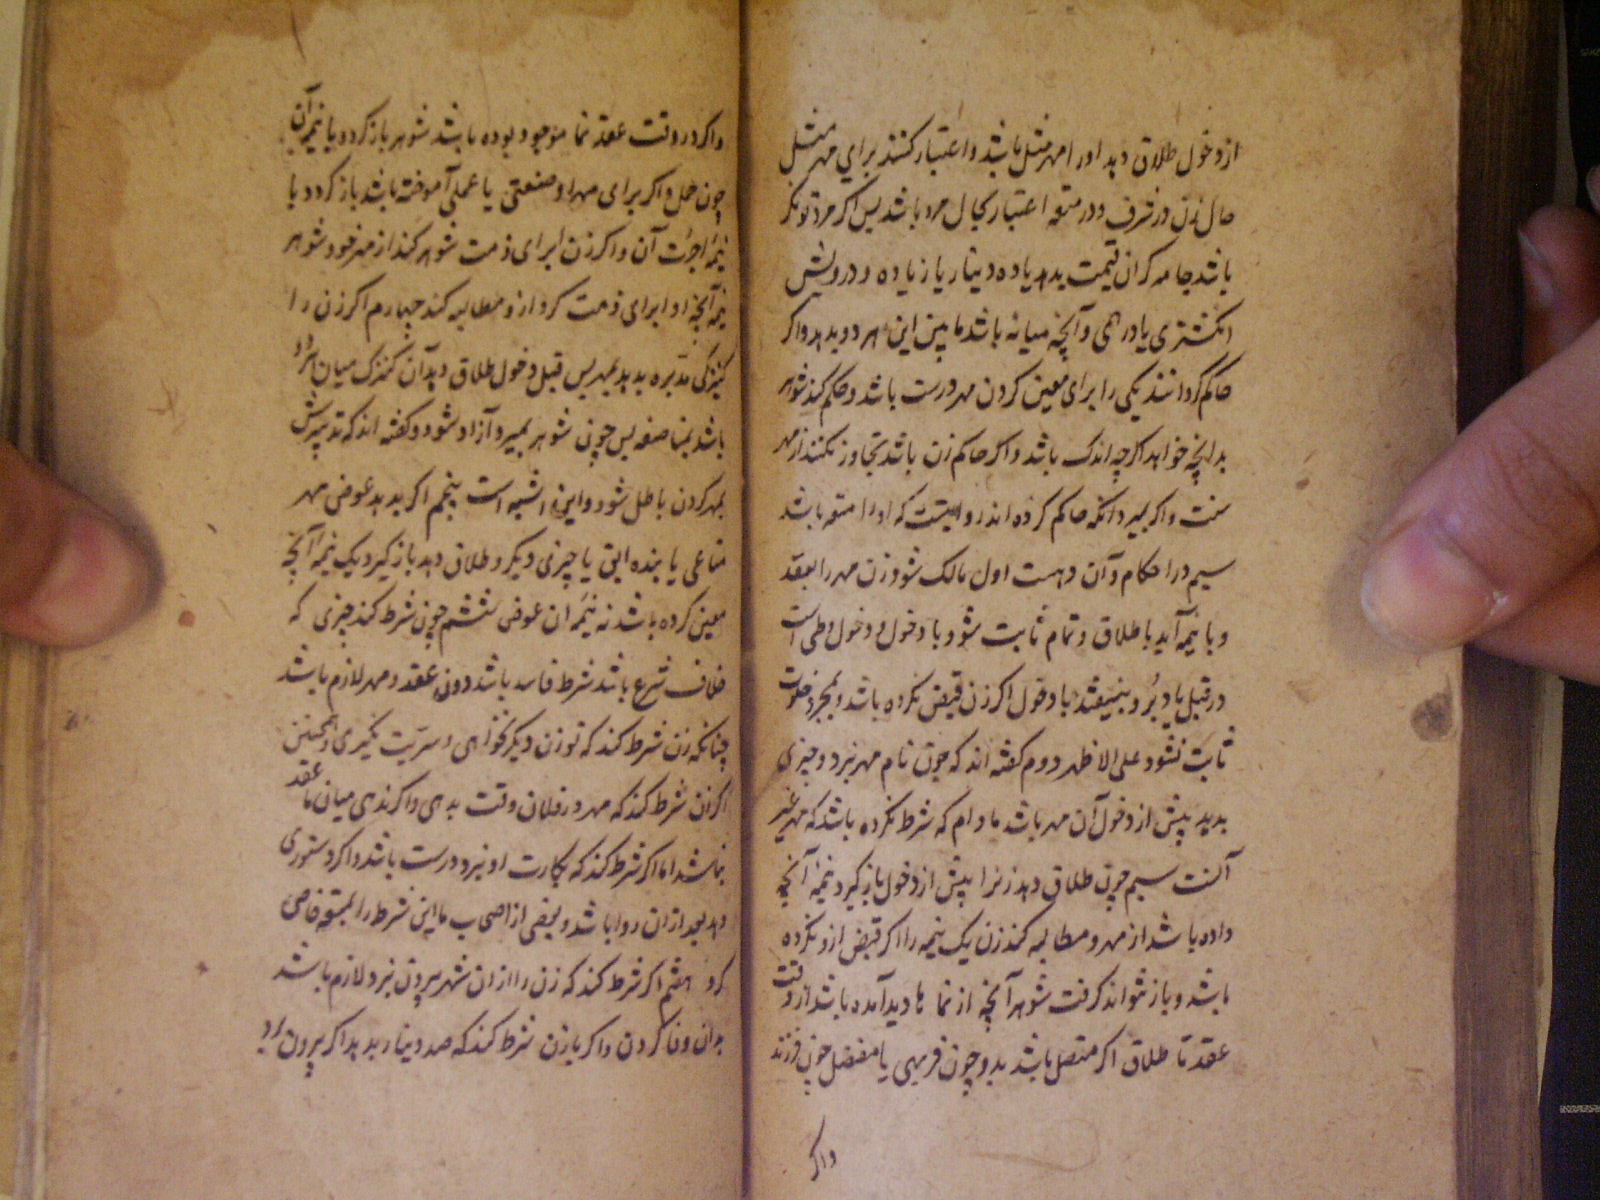 از دخول طلاق دهد او را مهر مثل باشد و اعتبار کنند برای مهر مثل
حال زن در شرف و در متعه اعتبار بحال مرد باشد پس اکر مرد تونکر
باشد جامه کران قیمت بدهد یا ده دینار یا زیاده و درویش
انکشتری یا درهمی و آنچه میانه باشد مابین این هر دو بدهد و اکر
حاکم کردانند یکی را برای معین کردن مهر درست باشد و حکم کند شوهر
بدانچه خواهد اکرچه اندک باشد و اکر حاکم زن باشد تجاوز نکند از مهر
سنت و اکر بمیرد آنکه حاکم کرده اند روایتست که او را متعه باشد
سیم در احکام و آن دهست اول مالک شود زن مهر را بعقد
و با نیمه آید با طلاق و تمام ثابت شود با دخول و دخول وطی است
در قبل یا دبُر و بنیفتد با دخول اکر زن قبض نکرده باشد و بمجرد خلوت
ثابت نشود علی الاظهر دوم کفته اند که چون نام مهر نبرد و چیزی
بدهد پیش از دخول آن مهر باشد مادام که شرط نکرده باشد که مهر غیر
آنست سیم چون طلاق دهد زنرا پیش از دخول باز کیرد نیمهٔ آنچه
داده باشد از مهر و مطالبه کند زن یک نیمه را اکر قبض ازو نکرده
باشد و باز نتواند کرفت شوهر آنچه از نماها دید آمده باشد از وقت
عقد تا طلاق اکر متصل باشد بدو چون فربهی یا منفصل چون فرزند
واکر
و اکر در وقت عقد نما موجود بوده باشد شوهر باز کردد با نیمهٔ آن
چون حمل و اکر برای مهر او صنعتی یا عملی آموخته باشد باز کردد با
نیمهٔ اجرت آن و اکر زن ابرای ذمت شوهر کند از مهر خود شوهر
نیمهٔ آنچه او ابرای ذمت کرد ازو مطالبه کند چهارم اکر زن را
کنیزکی مدبره بدهد بمهر پس قبل دخول طلاق دهد آن کنیزک میان هر دو
باشد بمناصفه پس چون شوهر بمیرد آزاد شود و کفته اند که تدبیرش
بمهر کردن باطل شود و این اشبه است پنجم اکر بدهد عوض مهر
متاعی یا بنده ابق یا چیزی دیکر و طلاق دهد باز کیرد یک نیمهٔ آنچه
معین کرده باشد نه نیمهٔ ان عوض ششم چون شرط کند چیزی که
خلاف شرع باشد شرط فاسد باشد دون عقد و مهر لازم باشد
چنانکه زن شرط کند که تو زن دیکر نخواهی و سریت نکیری و همچنین
اکر زن شرط کند که مهر در فلان وقت بدهی و اکر ندهی میان ما عقد
نباشد اما اکر شرط کند که بکارت او نبرد درست باشد و اکر دستوری
دهد بعد از ان روا باشد و بعضی از اصحاب ما این شرط را بمتعه خاص
کرد هفتم اکر شرط کند که زن را از ان شهر بیرون نبرد لازم باشد
بدان وفا کردن و اکر با زن شرط کند که صد دینار بدهد اکر بیرون رود